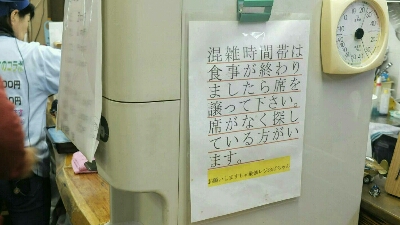 混雑時間帯は
食事が終わり
ましたら席を
譲って下さい。
席がなく探し
ている方がい
ます。